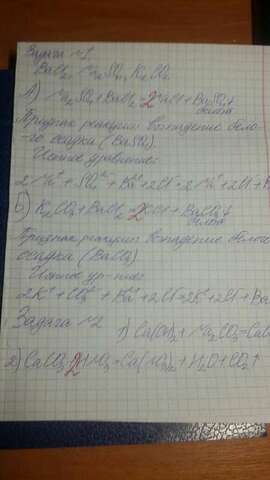 Задача №1.
BaCl₂, Na₂SO₄, K₂CO₃
А) Na₂SO₄+BaCl₂=2NaCl+BaSO₄↓
белый
Признак реакции: выпадение бело-
го осадка (BaSO₄)
Ионное уравнение:
2Na⁺+SO₄²⁻+Ba²⁺+2Cl⁻=2Na⁺+2Cl⁻+B
Б) K₂CO₃+BaCl₂=2KCl+BaCO₃↓
белый
Признак реакции: выпадение белого
осадка (BaCO₃)
Ионное ур-ние:
2K⁺+CO₃²⁻+Ba²⁺+2Cl⁻=2K⁺+2Cl⁻+Ba
Задача №2
1) Ca(OH)₂+Na₂CO₃=CaC
2) CaCO₃+2HNO₃=Ca(NO₃)₂+H₂O+CO₂↑